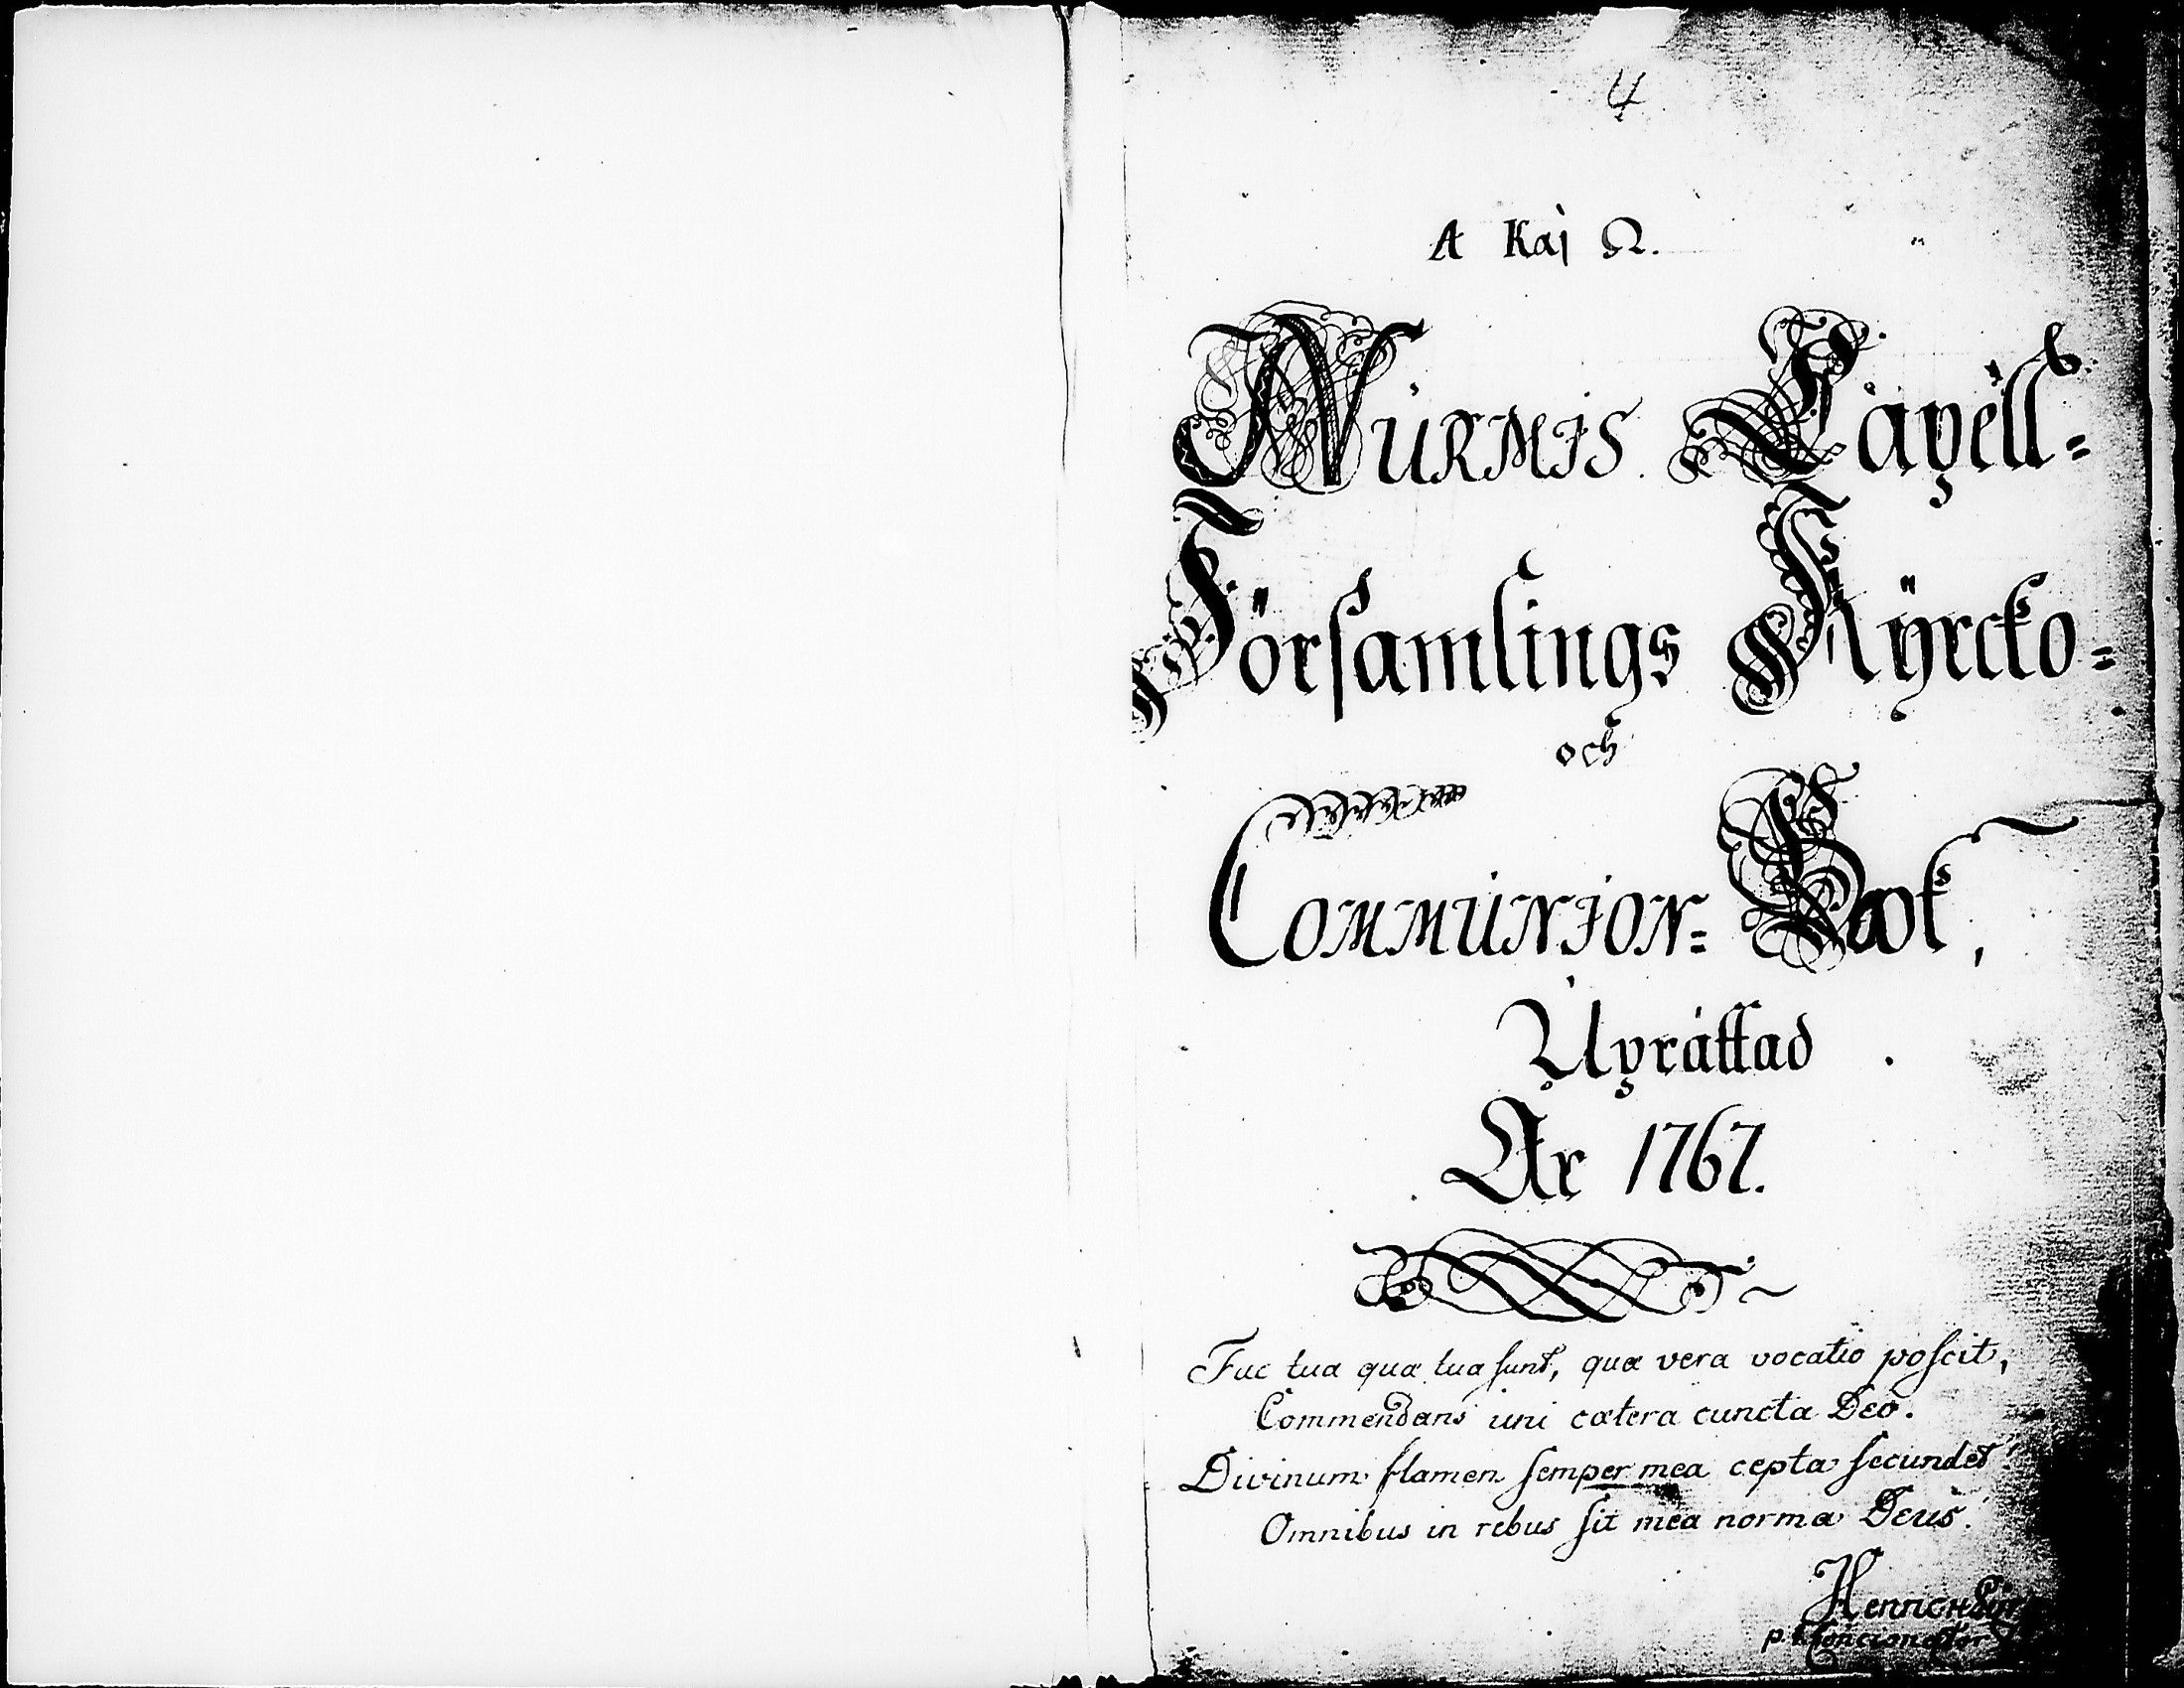 4
A Kaj Ω.
WÜRMIS Capell=
Församlings Kÿrcko=
och
COMMUNION= Book,
Uprättad
År 1767.
Fac tua quæ tua sunt, quæ vera vocatio poscit,
Commendans uni cætera cuncta Deo.
Divinum flamen semper mea cepta secundet!
Omnibus in rebus sit mea norma Deus.
HENRICH
p. t. Concionator